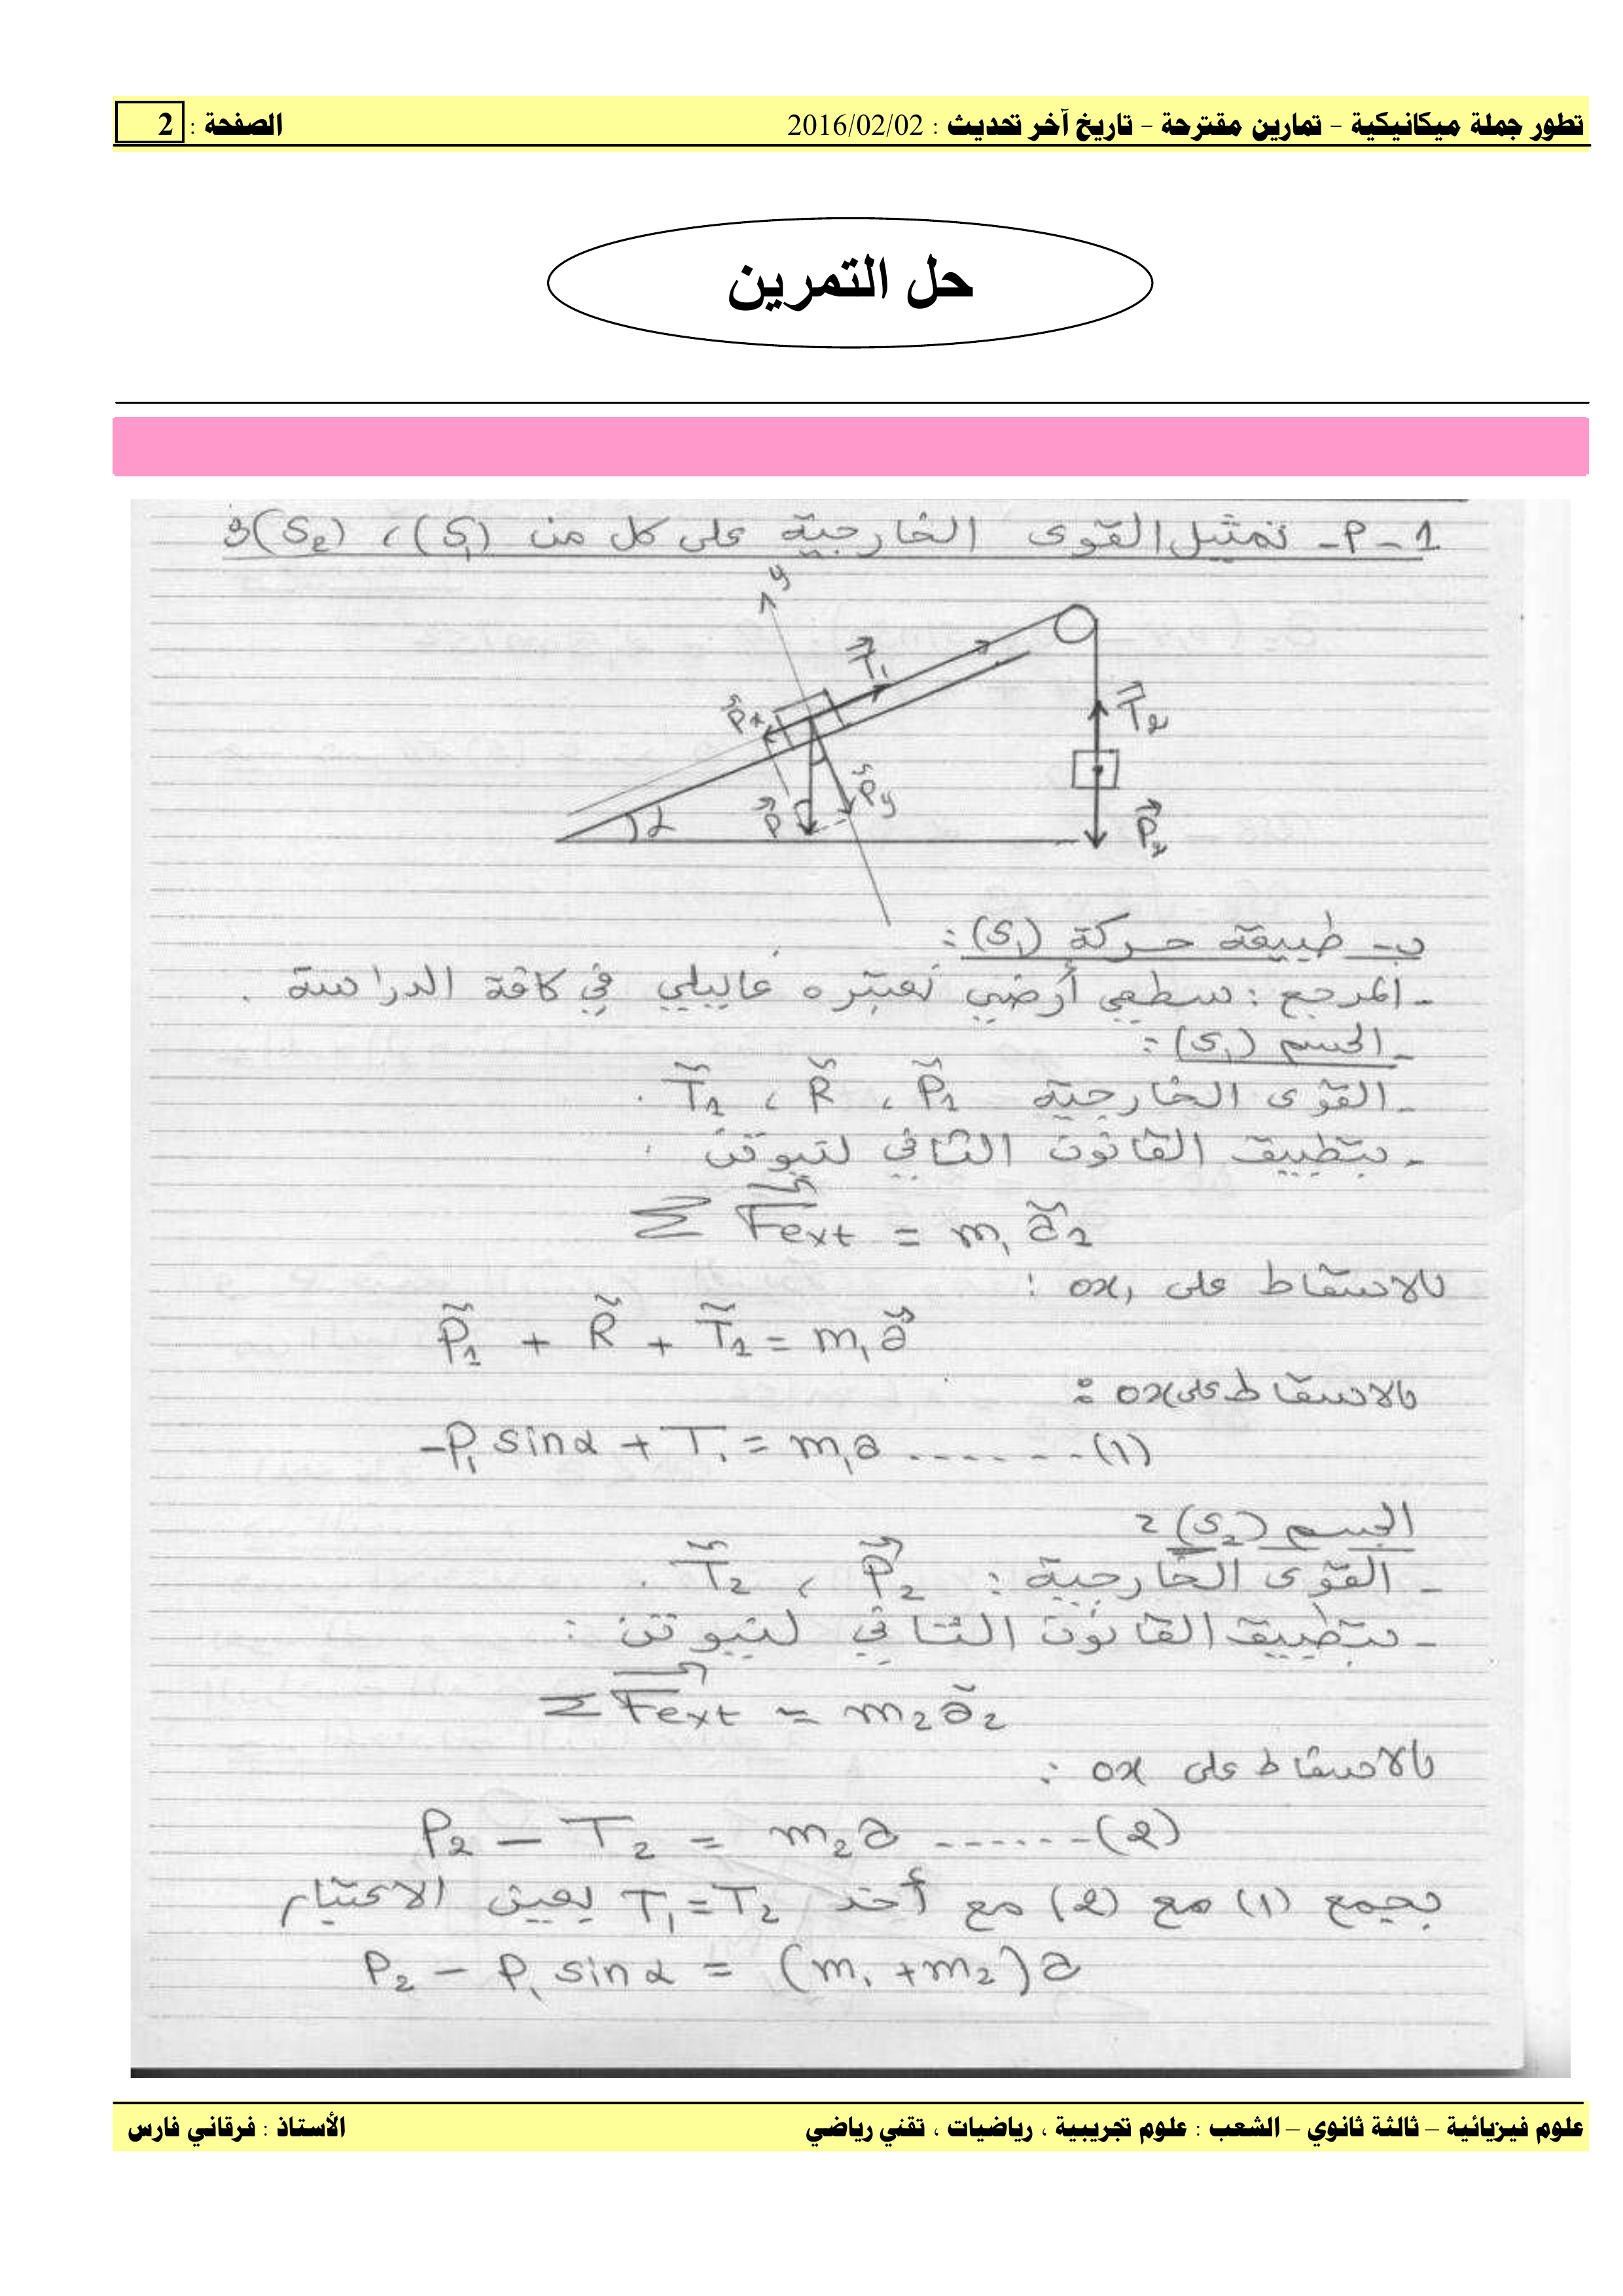 تطور جملة ميكانيكية - تمارين مقترحة - تاريخ آخر تحديث : 2016/02/02 الصفحة : 2
حل التمرين
1-P- تمثيل القوى الخارجية على كل من (S1) ، (S2) :
y
T1
Px
Py
P
α
T2
P2
ب- طبيعة حركة (S1) :
- المرجع : سطحي أرضي نعتبره غاليلي في كافة الدراسة .
- الجسم (S1) :
- القوى الخارجية P1 ، R ، T1 .
- بتطبيق القانون الثاني لنيوتن :
Σ Fext = m1 a1
بالاسقاط على ox :
P1 + R + T1 = m1 a
بالاسقاط على ox :
-P1 sinα + T1 = m1a .......(1)
الجسم (S2) :
- القوى الخارجية : P2 ، T2 .
- بتطبيق القانون الثاني لنيوتن :
Σ Fext = m2 a2
بالاسقاط على ox :
P2 - T2 = m2a ......(2)
بجمع (1) مع (2) مع أخذ T1=T2 بعين الاعتبار
P2 - P1 sinα = (m1+m2)a
علوم فيزيائية – ثالثة ثانوي – الشعب : علوم تجريبية ، رياضيات ، تقني رياضي الأستاذ : فرقاني فارس